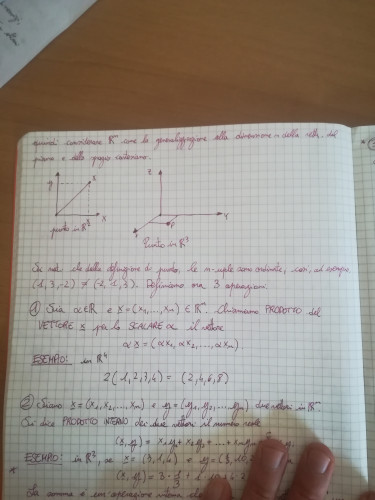 quindi considerare ℝⁿ come la generalizzazione alla dimensione n della retta, del
piano e dello spazio cartesiano.
y x
x
punto in ℝ²
z
y
P
Punto in ℝ³
Si noti che dalla definizione di punto, le n-uple sono ordinate, così, ad esempio
(1, 3, -2) ≠ (-2, 1, 3). Definiamo ora 3 operazioni.
① Sia α∈ℝ e x = (x₁, ..., xₙ) ∈ ℝⁿ. Chiamiamo PRODOTTO del
VETTORE x per lo SCALARE α il vettore
αx = (αx₁, αx₂, ..., αxₙ)
ESEMPIO: in ℝ⁴
2(1,2,3,4) = (2,4,6,8)
② Siano x = (x₁, x₂, ..., xₙ) e y = (y₁, y₂, ..., yₙ) due vettori in ℝⁿ.
Si dice PRODOTTO INTERNO dei due vettori il numero reale
(x,y) = x₁y₁ + x₂y₂ + ... + xₙyₙ
ESEMPIO: in ℝ³, se x = (3,1,4) e y =
(x,y) = 3 ·
La somma è un'operazione interna che